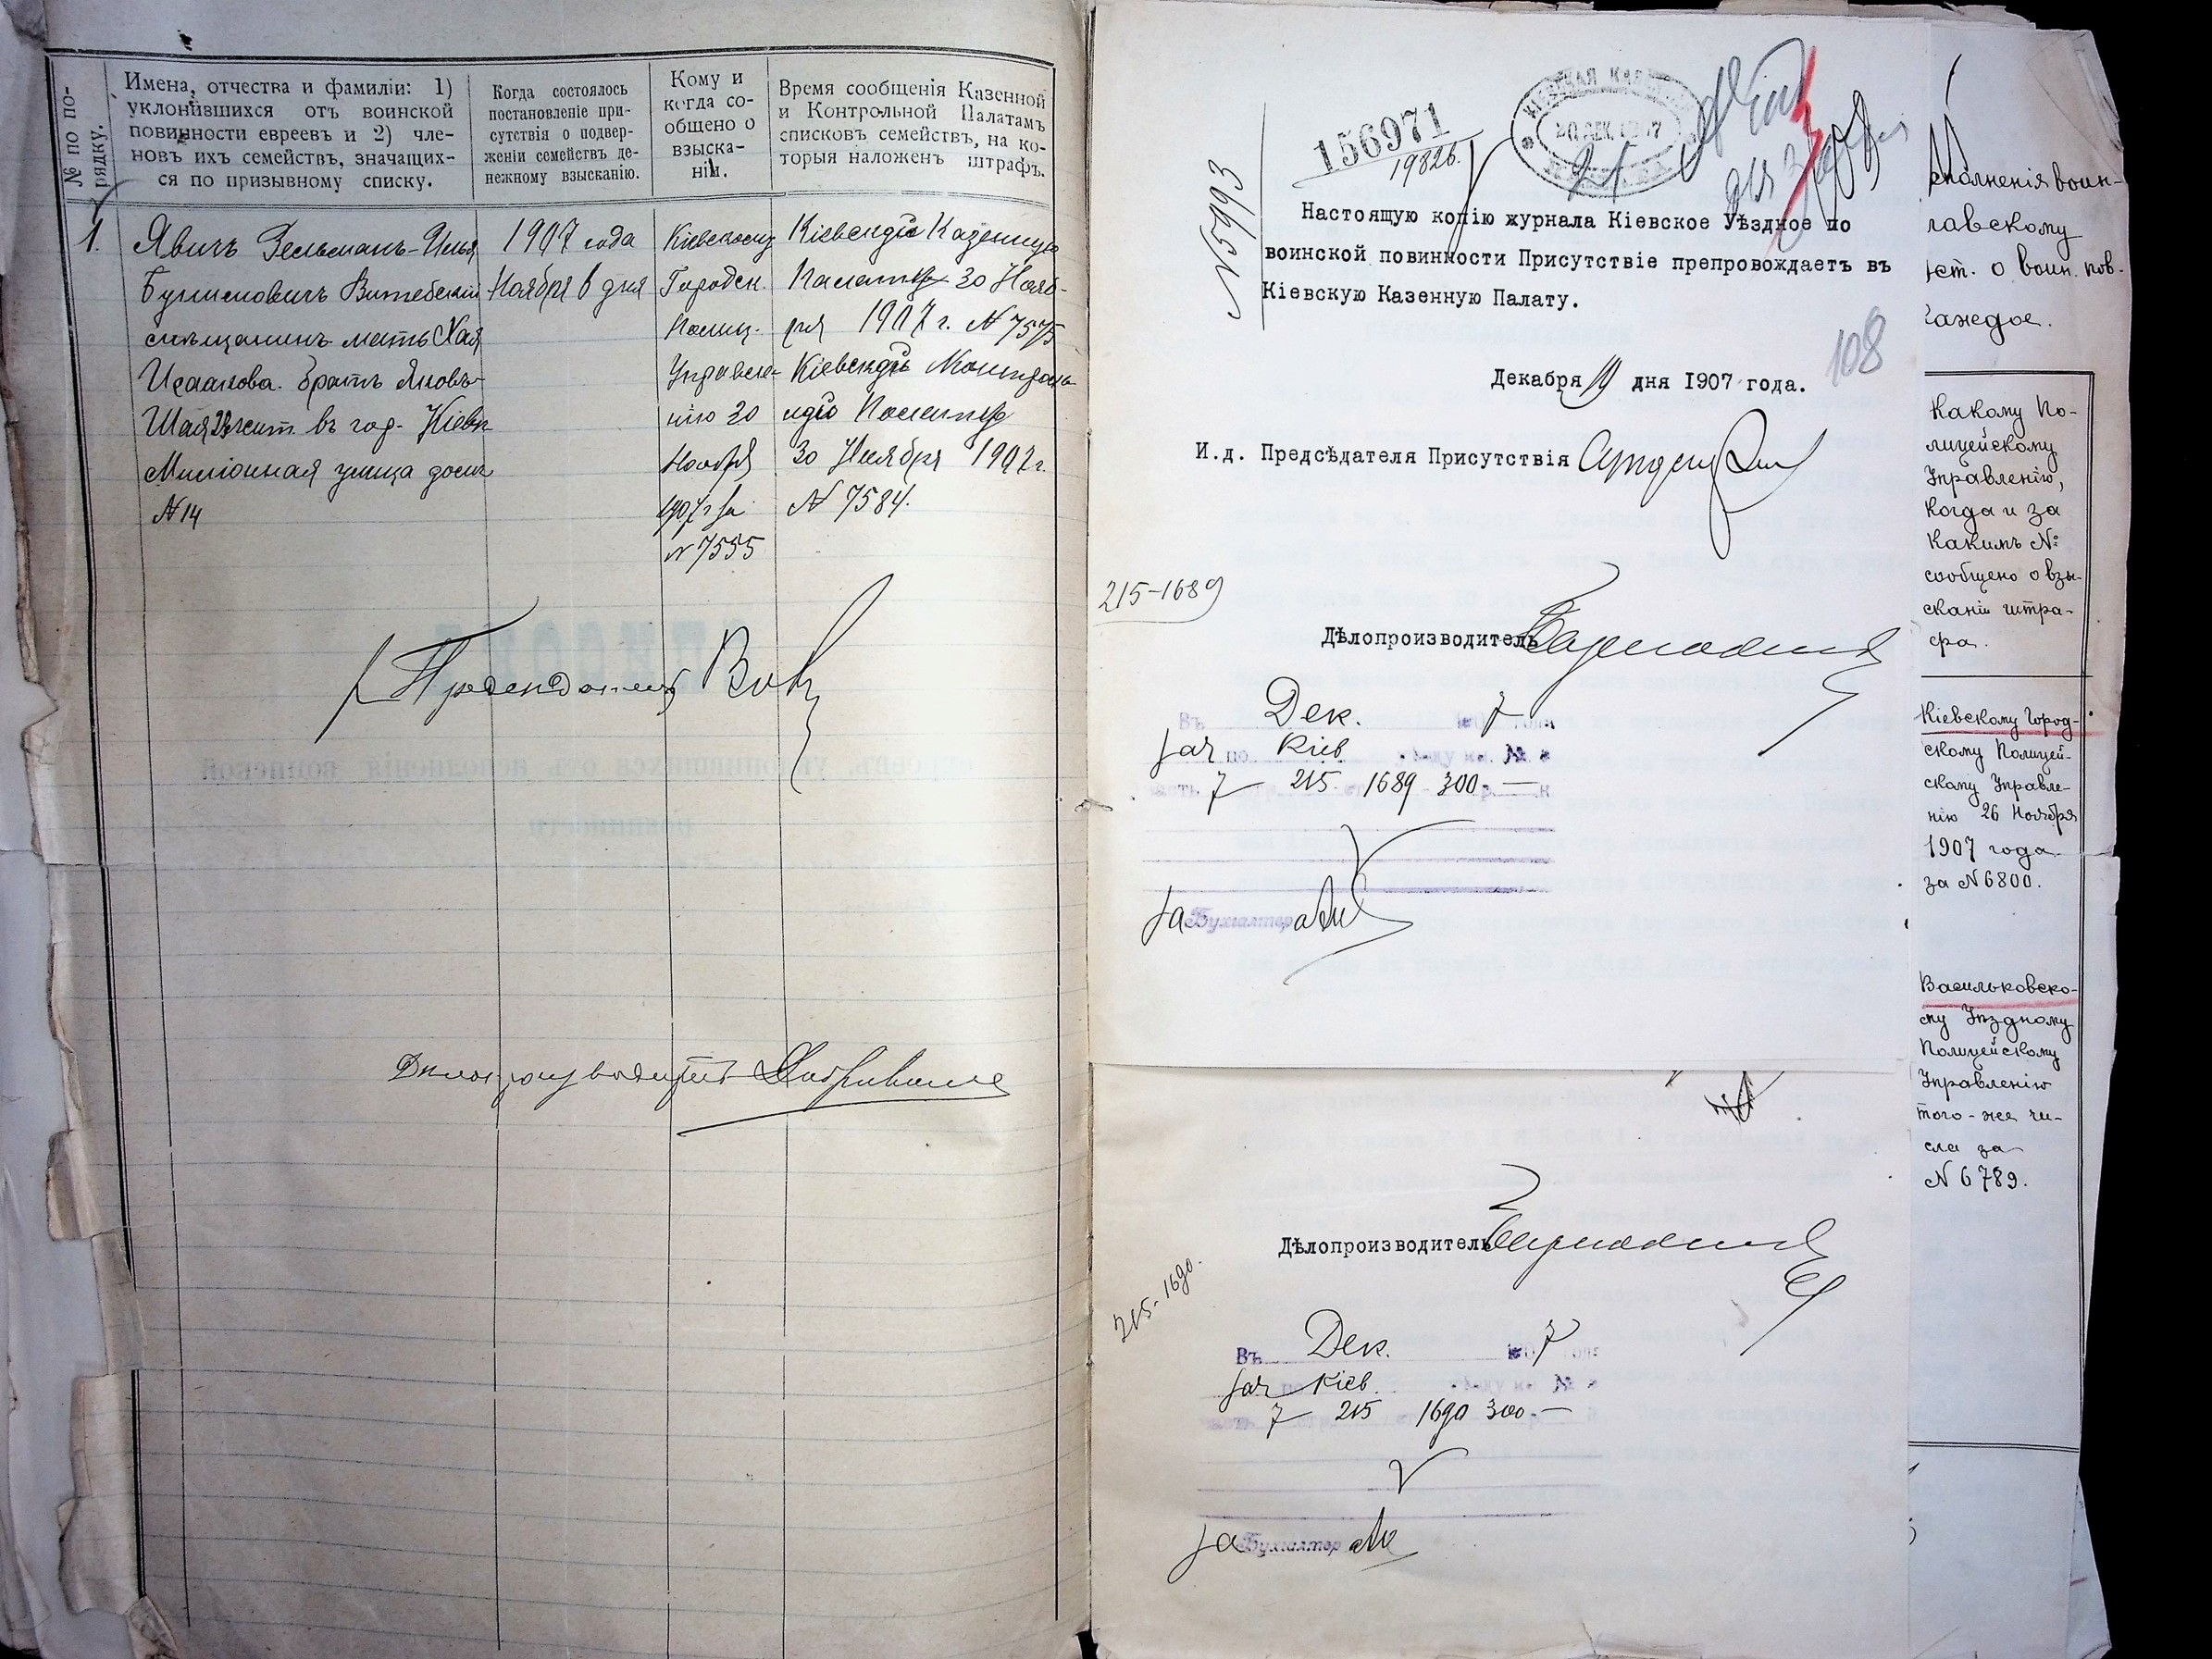 № по по-
рядку.
Имена, отчества и фамиліи: 1)
уклонившихся отъ воинской
повинности евреевъ и 2) чле-
новъ ихъ семействъ, значащих-
ся по призывному списку.
Когда состоялось
постановленіе при-
сутствія о подвер-
женіи семействъ де-
нежному взысканію.
Кому и
когда со-
общено о
взыска-
ніи.
Время сообщенія Казенной
и Контрольной Палатамъ
списковъ семействъ, на ко-
торыя наложенъ штрафъ.
1.
Явичъ Зельманъ-Илья
Витебскій
мѣщанинъ мать Хая
Исаакова братъ Яковъ-
Шая жит. въ гор. Кіевѣ
Миліонная улица домъ
№ 14
1907 года
Ноября 6 дня
Кіевскому
Городск.
Полиц.
Управле-
нію 20
Ноября
1907 г за
№ 7555
Кіевскую Казенную
Палату 30 Нояб-
ря 1907 г. № 7575
Кіевскую Контроль-
ную Палату
30 Ноября 1907 г.
№ 7584.
Предсѣдатель
Дѣлопроизводитель
№ 5993
156971
19826.
КІЕВСКАЯ КАЗ
20 ДЕК. 1907
21
Настоящую копію журнала Кіевское Уѣздное по
воинской повинности Присутствіе препровождаетъ въ
Кіевскую Казенную Палату.
108
Декабря 19 дня 1907 года.
И.д. Предсѣдателя Присутствія
215-1689
Дѣлопроизводитель
Въ Дек. 7
зач по Кіев. №
7 215. 1689 300. —
за Бухгалтер
Дѣлопроизводитель
215-1690.
Въ Дек. 7
зач Кіев. №
7 215 1690 300. —
за Бухгалтер
исполненія воин-
лавскому
о воин. пов.
каждое.
Какому По-
лицейскому
Управленію,
когда и за
какимъ №
сообщено о взы-
сканіи штра-
фа.
Кіевскому Город-
скому Полицей-
скому Управле-
нію 26 Ноября
1907 года
за № 6800.
Васильковско-
му Уѣздному
Полицейскому
Управленію
того-же чи-
сла за
№ 6789.